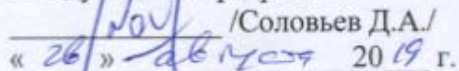 /Соловьев Д.А./
« 26 » августа 2019 г.